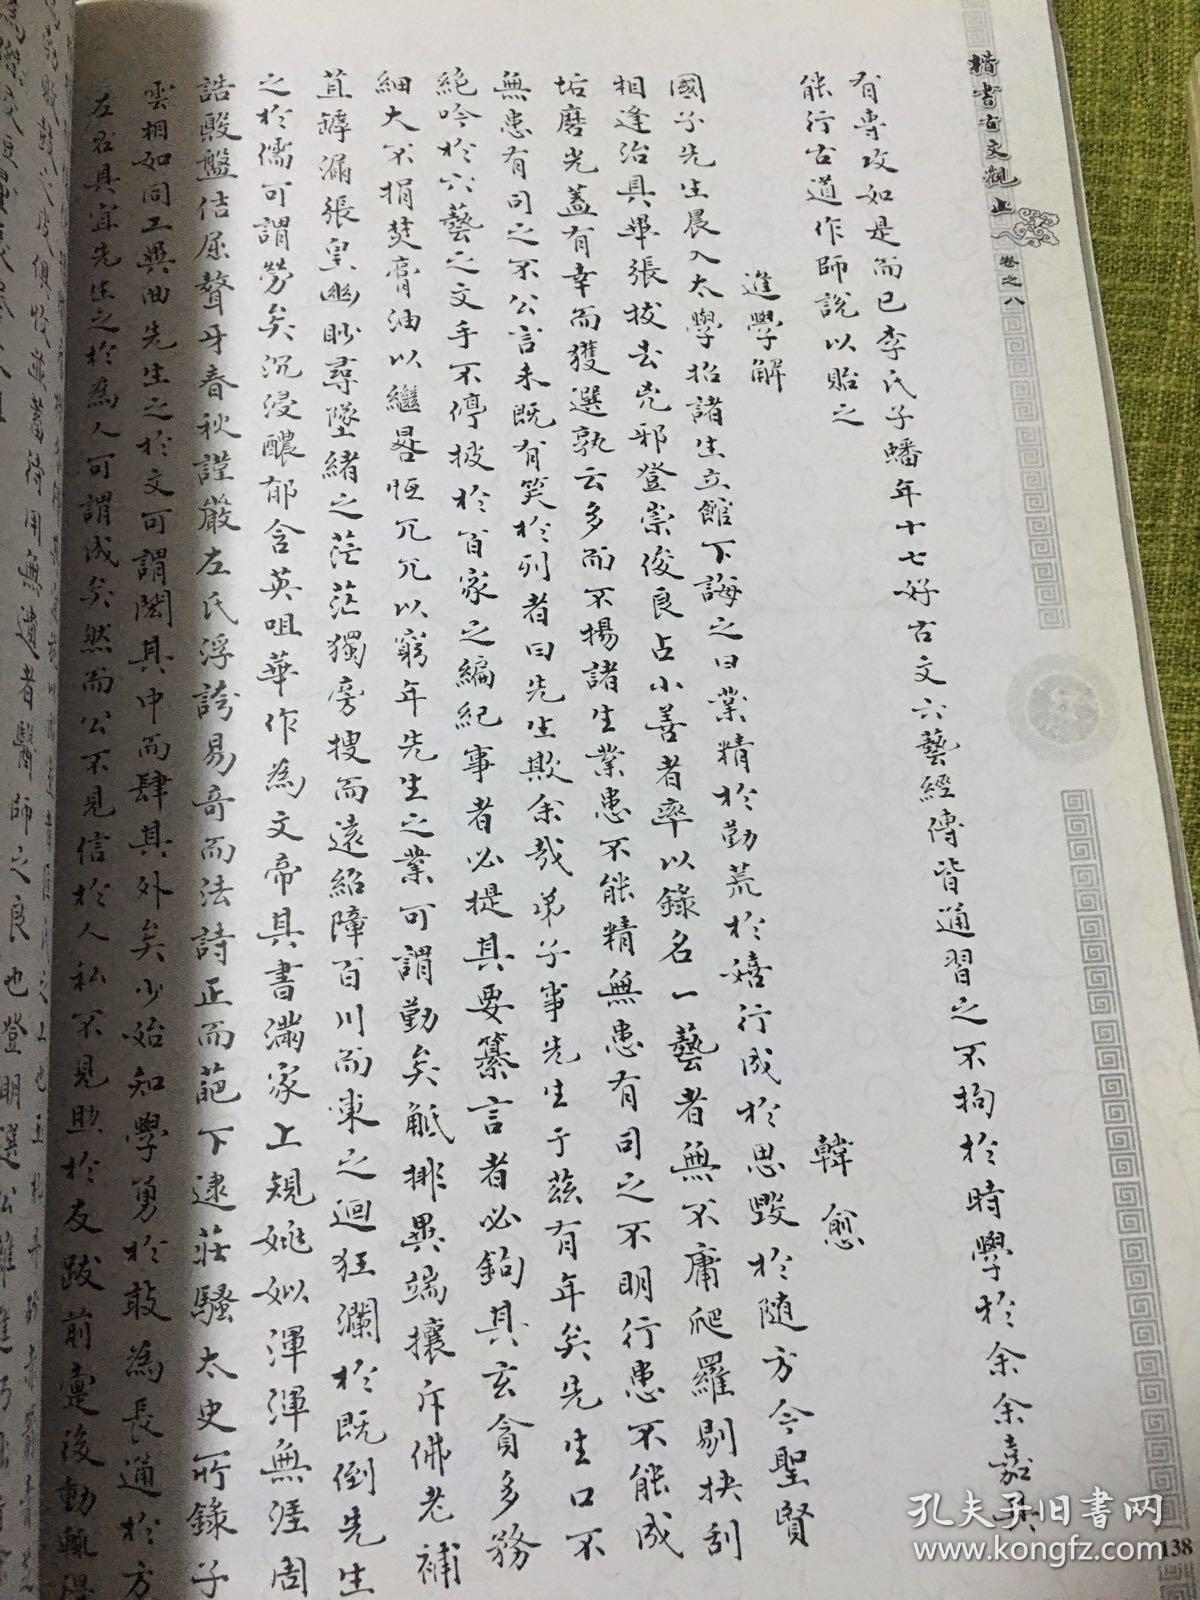 楷書古文觀止
卷之八
有專攻如是而已李氏子蟠年十七好古文六藝經傳皆通習之不拘於時學於余余嘉其
能行古道作師說以貽之
進學解
韓愈
國子先生晨入太學招諸生立館下誨之曰業精於勤荒於嬉行成於思毀於隨方今聖賢
相逢治具畢張拔去兇邪登崇俊良占小善者率以錄名一藝者無不庸爬羅剔抉刮
垢磨光蓋有幸而獲選孰云多而不揚諸生業患不能精無患有司之不明行患不能成
無患有司之不公言未既有笑於列者曰先生欺余哉弟子事先生于茲有年矣先生口不
絕吟於六藝之文手不停披於百家之編紀事者必提其要纂言者必鉤其玄貪多務
細大不捐焚膏油以繼晷恒兀兀以窮年先生之業可謂勤矣觝排異端攘斥佛老補
苴罅漏張皇幽眇尋墜緒之茫茫獨旁搜而遠紹障百川而東之迴狂瀾於既倒先生
之於儒可謂勞矣沉浸醲郁含英咀華作為文章其書滿家上規姚姒渾渾無涯周
誥殷盤佶屈聱牙春秋謹嚴左氏浮誇易奇而法詩正而葩下逮莊騷太史所錄子
雲相如同工異曲先生之於文可謂閎其中而肆其外矣少始知學勇於敢為長通於方
左右具宜先生之於為人可謂成矣然而公不見信於人私不見助於友跋前疐後動輒得
俱收並蓄待用無遺者醫師之良也登明選公
138
孔夫子旧书网
www.kongfz.com